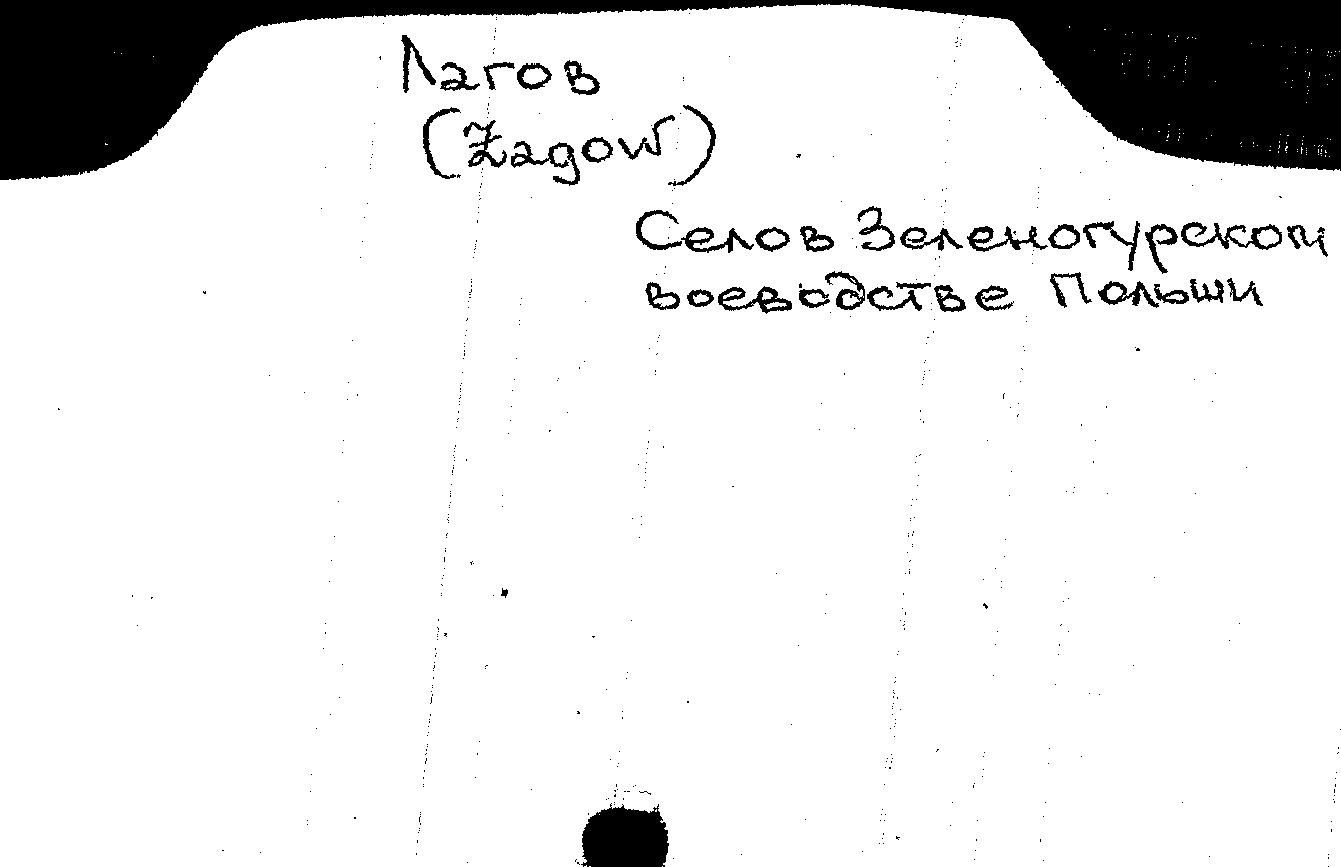 Лагов
(Łagów)
Село в Зеленогурском
воеводстве Польши